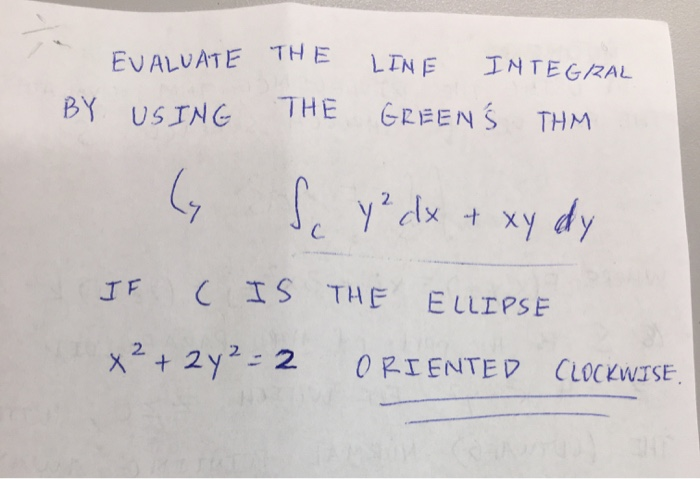 EVALUATE THE LINE INTEGRAL
BY USING THE GREEN'S THM
∫c y² dx + xy dy
IF C IS THE ELLIPSE
x² + 2y² = 2 ORIENTED CLOCKWISE.